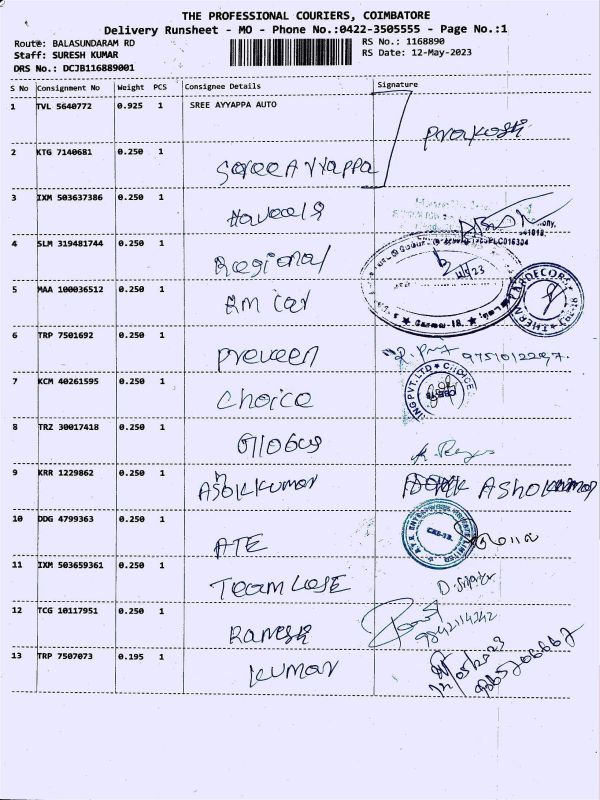 THE PROFESSIONAL COURIERS, COIMBATORE
Delivery Runsheet - MO - Phone No.:0422-3505555 - Page No.:1
Route: BALASUNDARAM RD
RS No.: 1168890
Staff: SURESH KUMAR
RS Date: 12-May-2023
DRS No.: DCJB116889001
S No Consignment No Weight PCS Consignee Details Signature
1 TVL 5640772 0.925 1 SREE AYYAPPA AUTO
Prakash
2 KTG 7140681 0.250 1 Sree Ayyappa
3 IXM 503637386 0.250 1
4 SLM 319481744 0.250 1 Regional
5 MAA 100036512 0.250 1 AM car
6 TRP 7501692 0.250 1 Preveen
7 KCM 40261595 0.250 1 Choice
8 TRZ 30017418 0.250 1
9 KRR 1229862 0.250 1 Ashokkumar Ashokkumar
10 DDG 4799363 0.250 1 ATE
11 IXM 503659361 0.250 1 Team
12 TCG 10117951 0.250 1 Ramesh 9842114242
13 TRP 7507073 0.195 1 Kumar